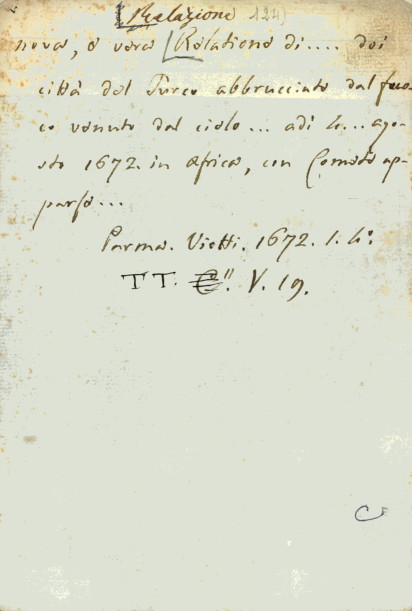 [Realazione 124)
nova, e vera [Relatione di.... doi
città del Turco abbrucciate dal fuo-
co venuto dal cielo... adì 4... ago-
sto 1672. in Africa, con Comete ap-
parse...
Parma. Viotti. 1672. 1. 4°.
TT. V. 19.
C